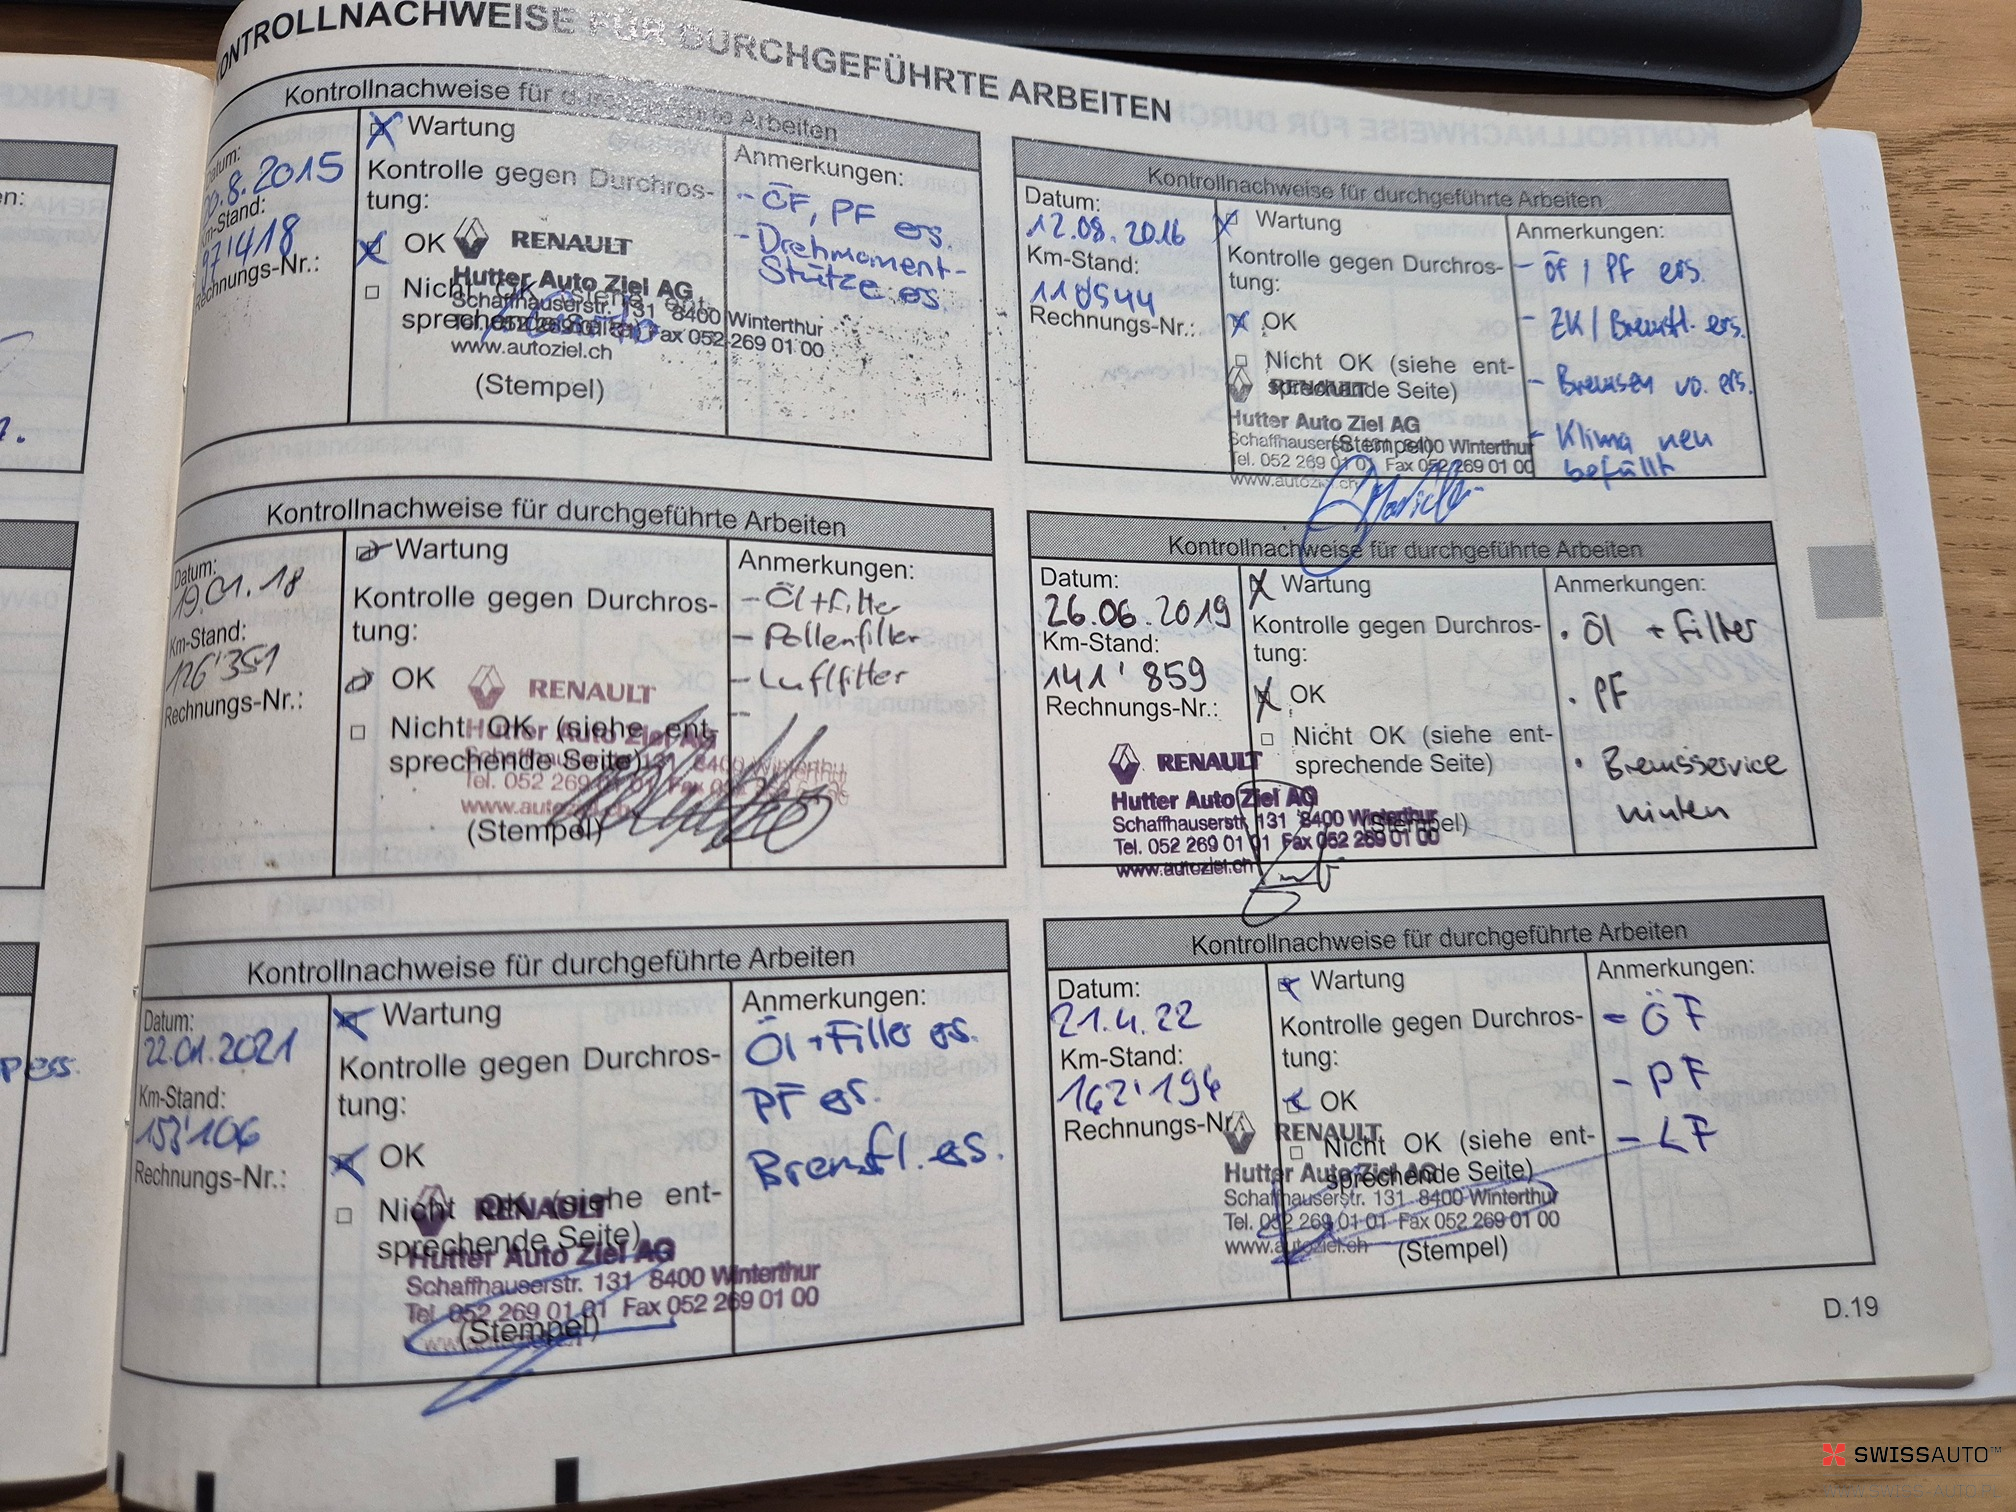 KONTROLLNACHWEISE FÜR DURCHGEFÜHRTE ARBEITEN
Kontrollnachweise für durchgeführte Arbeiten
Datum:
.8.2015
Km-Stand:
97'418
Rechnungs-Nr.:
Wartung
Kontrolle gegen Durchros-
tung:
OK
Nicht OK (siehe ent-
sprechende Seite)
RENAULT
Hutter Auto Ziel AG
Schaffhauserstr. 131 8400 Winterthur
Tel. 052 269 01 01 Fax 052 269 01 00
www.autoziel.ch
(Stempel)
Anmerkungen:
- ÖF, PF ers.
- Drehmoment-
Stütze ers.
Kontrollnachweise für durchgeführte Arbeiten
Datum:
12.08.2016
Km-Stand:
110544
Rechnungs-Nr.:
Wartung
Kontrolle gegen Durchros-
tung:
OK
Nicht OK (siehe ent-
sprechende Seite)
RENAULT
Hutter Auto Ziel AG
(Stempel)
Schaffhauserstr. 131 8400 Winterthur
Tel. 052 269 01 01 Fax 052 269 01 00
www.autoziel.ch
Anmerkungen:
- ÖF / PF ers.
- ZK / Bremsfl. ers.
- Bremsen vo. ers.
- Klima neu
befüllt
Kontrollnachweise für durchgeführte Arbeiten
Datum:
19.01.18
Km-Stand:
126'351
Rechnungs-Nr.:
Wartung
Kontrolle gegen Durchros-
tung:
OK
Nicht OK (siehe ent-
sprechende Seite)
RENAULT
Hutter Auto Ziel AG
Schaffhauserstr. 131 8400 Winterthur
Tel. 052 269 01 01 Fax 052 269 01 00
www.autoziel.ch
(Stempel)
Anmerkungen:
- Öl + Filter
- Pollenfilter
- Luftfilter
-
Kontrollnachweise für durchgeführte Arbeiten
Datum:
26.06.2019
Km-Stand:
141'859
Rechnungs-Nr.:
Wartung
Kontrolle gegen Durchros-
tung:
OK
Nicht OK (siehe ent-
sprechende Seite)
RENAULT
Hutter Auto Ziel AG
Schaffhauserstr. 131 8400 Winterthur
(Stempel)
Tel. 052 269 01 01 Fax 052 269 01 00
www.autoziel.ch
Anmerkungen:
• Öl + Filter
• PF
• Bremsservice
hinten
Kontrollnachweise für durchgeführte Arbeiten
Datum:
22.01.2021
Km-Stand:
153'106
Rechnungs-Nr.:
Wartung
Kontrolle gegen Durchros-
tung:
OK
Nicht OK (siehe ent-
sprechende Seite)
RENAULT
Hutter Auto Ziel AG
Schaffhauserstr. 131 8400 Winterthur
Tel. 052 269 01 01 Fax 052 269 01 00
(Stempel)
Anmerkungen:
Öl + Filter ers.
PF ers.
Bremsfl. ers.
Kontrollnachweise für durchgeführte Arbeiten
Datum:
21.4.22
Km-Stand:
162'194
Rechnungs-Nr.
Wartung
Kontrolle gegen Durchros-
tung:
OK
Nicht OK (siehe ent-
sprechende Seite)
RENAULT
Hutter Auto Ziel AG
Schaffhauserstr. 131 8400 Winterthur
Tel. 052 269 01 01 Fax 052 269 01 00
www.autoziel.ch
(Stempel)
Anmerkungen:
- ÖF
- PF
- LF
D.19
SWISSAUTO™